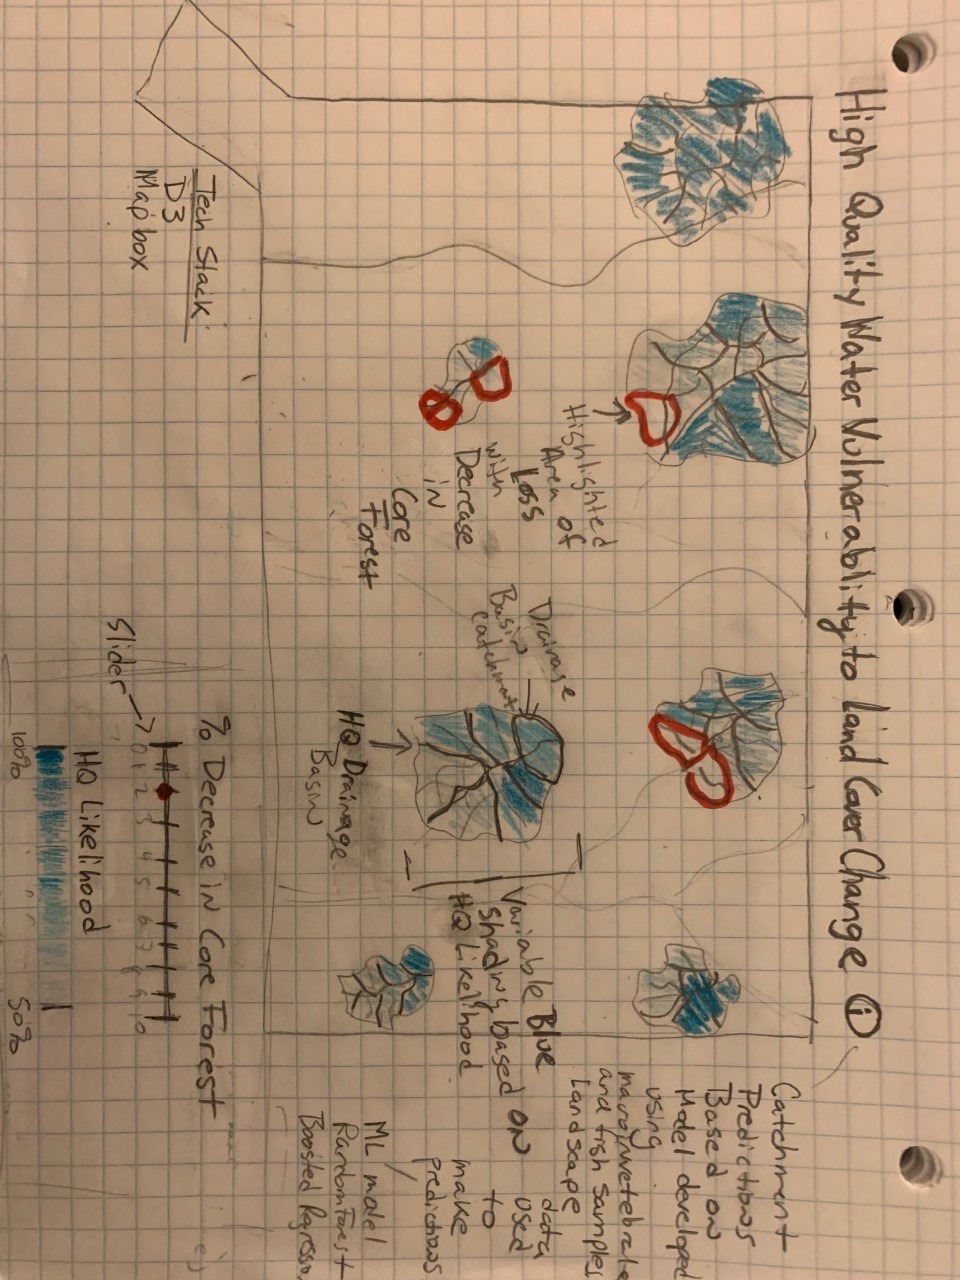 High Quality Water Vulnerablity to Land Cover Change i
Catchment
Predictions
Based on
Model developed
using
macroinvetebrate
and fish samples
Landscape
data
used
to
make
predictions
ML model
RandomForest
Boosted Regression
Highlighted
Area of
Loss
with
Decrease
in
Core
Forest
Drainage
Basin
catchment
Variable Blue
shading based on
HQ Likelihood
HQ Drainage
Basin
Tech Stack:
D3
Mapbox
% Decrease in Core Forest
0 1 2 3 4 5 6 7 8 9 10
Slider
HQ Likelihood
100% 50%